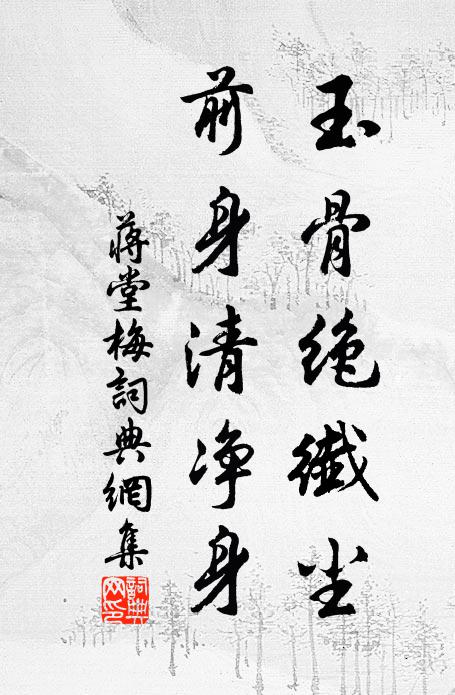 玉骨绝纤尘
前身清净身
蒋堂梅詞典網集
詞典网印